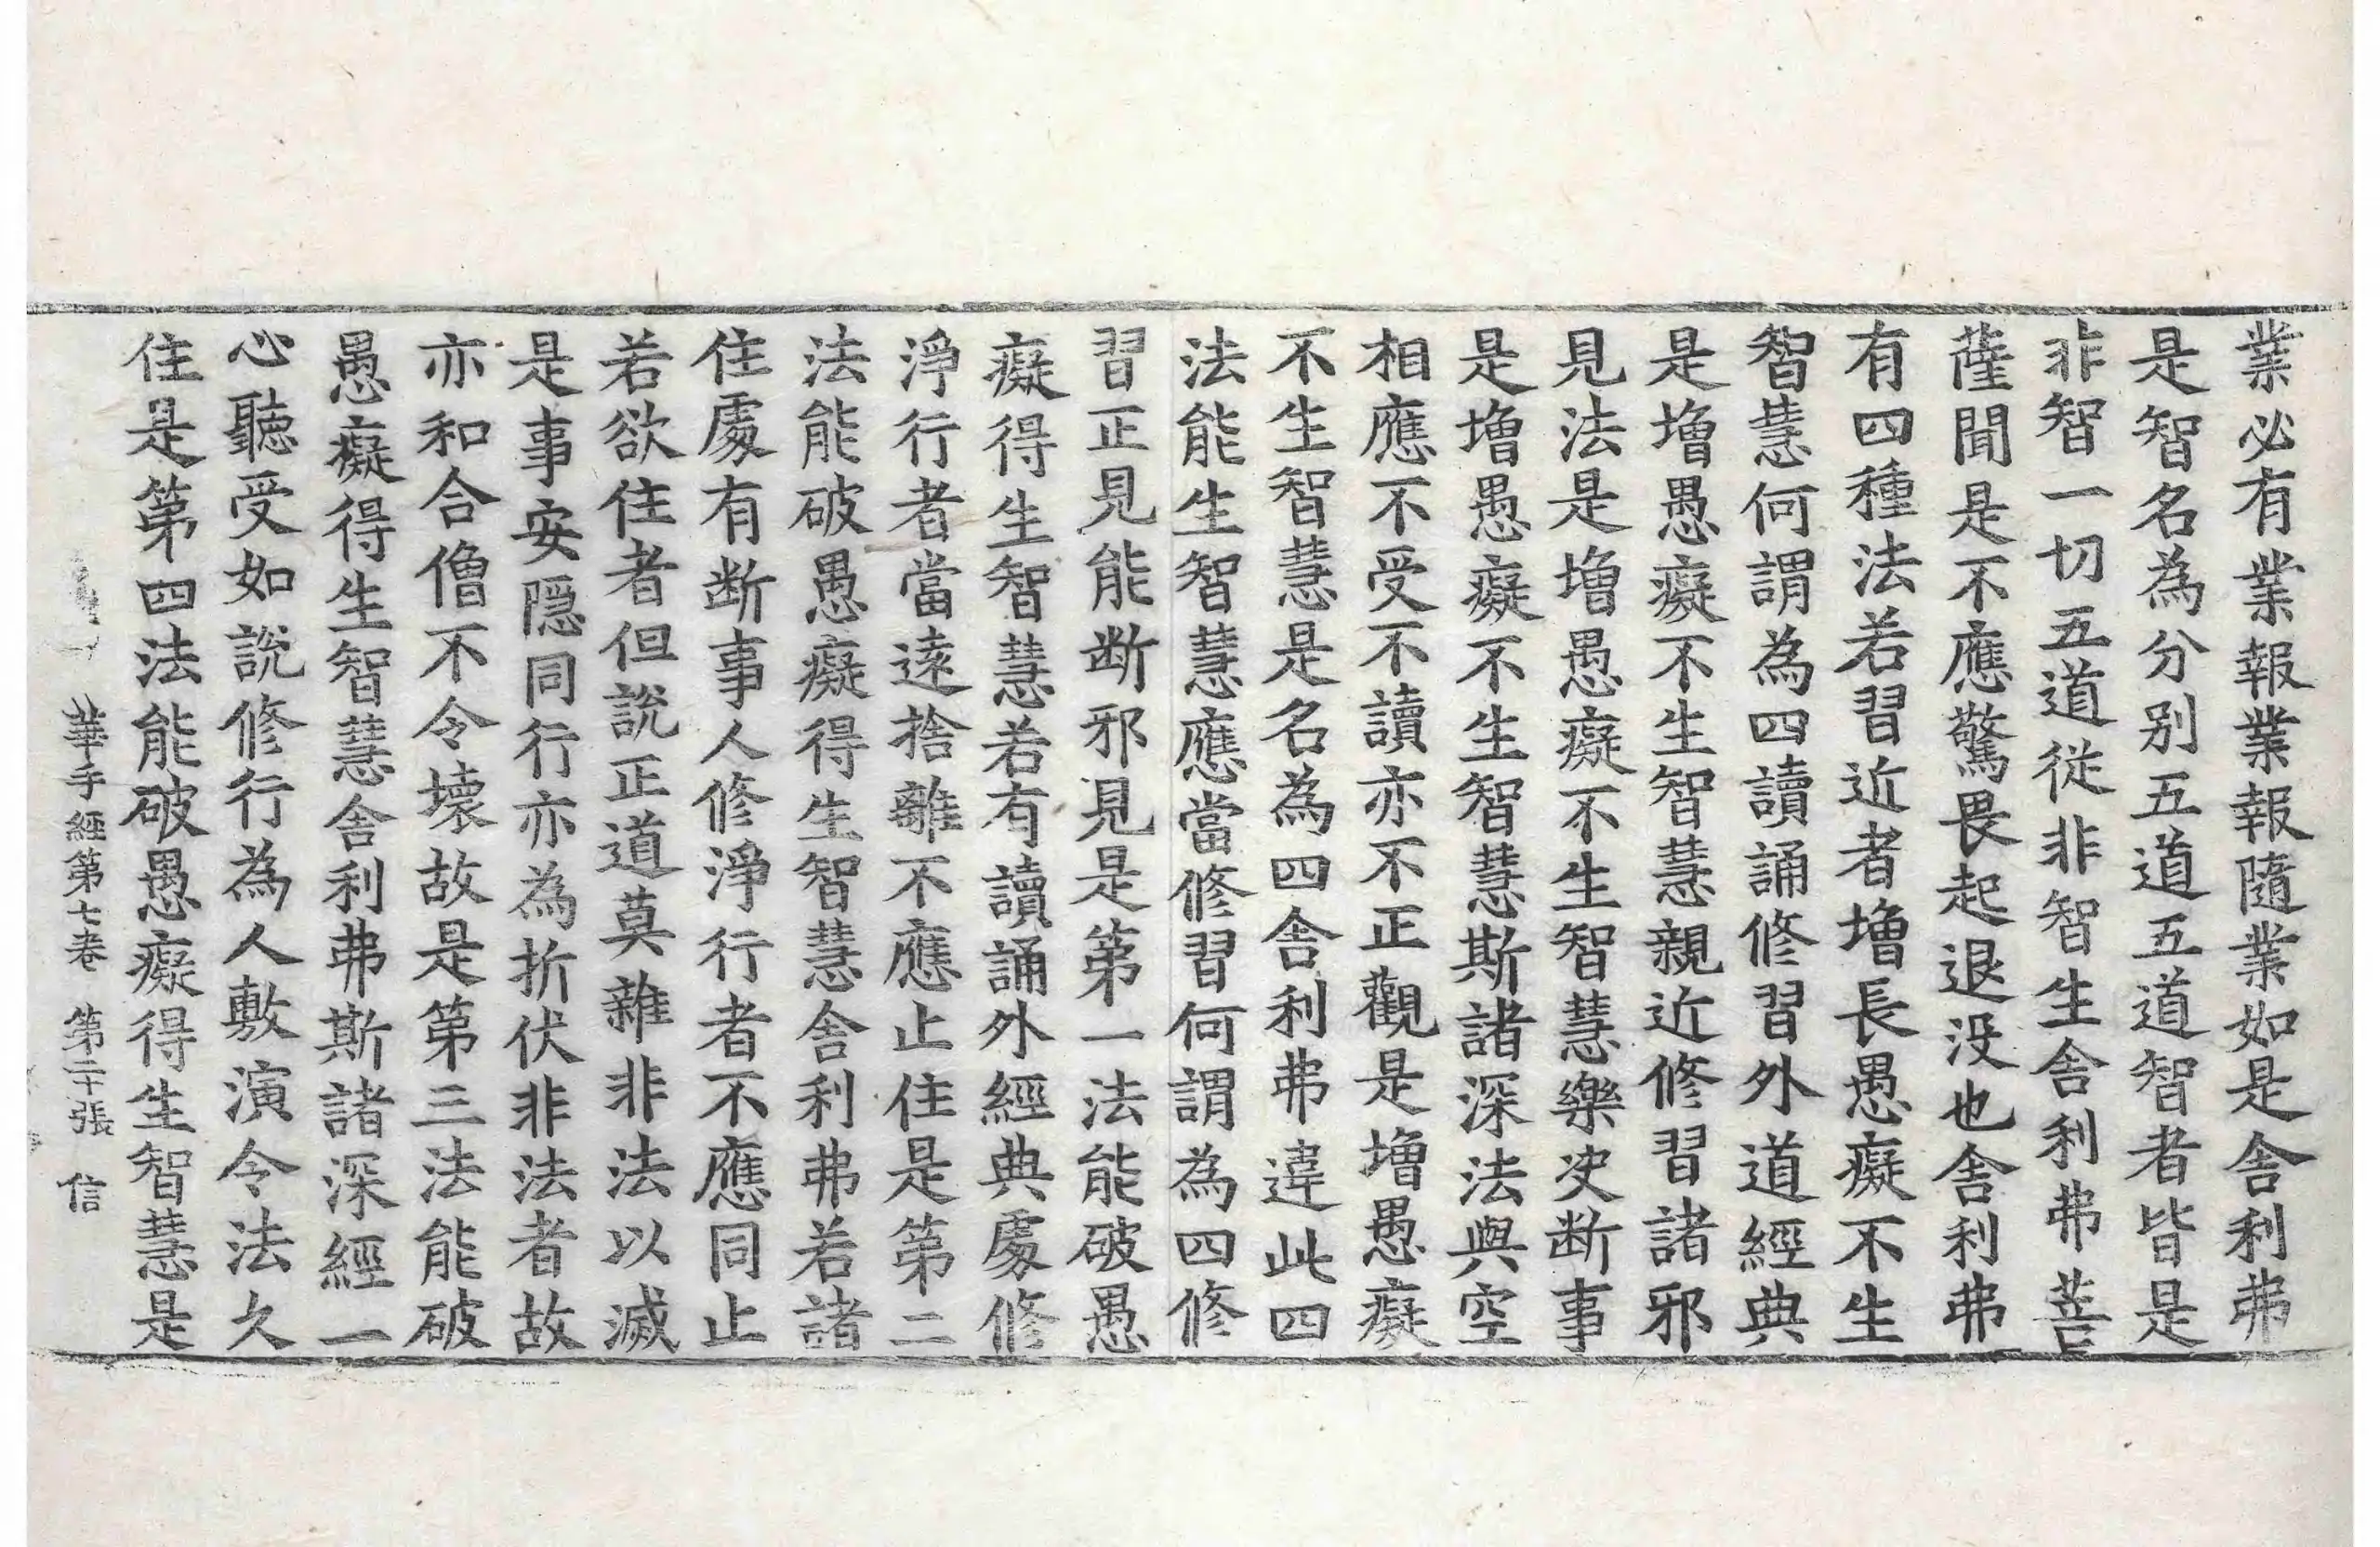 業必有業報業報隨業如是舍利弗
是智名為分別五道五道智者皆是
非智一切五道從非智生舍利弗菩
薩聞是不應驚畏起退没也舍利弗
有四種法若習近者增長愚癡不生
智慧何謂為四讀誦修習外道經典
是增愚癡不生智慧親近修習諸邪
見法是增愚癡不生智慧樂决断事
是增愚癡不生智慧斯諸深法與空
相應不受不讀亦不正觀是增愚癡
不生智慧是名為四舍利弗違此四
法能生智慧應當修習何謂為四修
習正見能断邪見是第一法能破愚
癡得生智慧若有讀誦外經典處修
淨行者當遠捨離不應止住是第二
法能破愚癡得生智慧舍利弗若諸
住處有断事人修淨行者不應同止
若欲住者但說正道莫雜非法以滅
是事安隱同行亦為折伏非法者故
亦和合僧不令壞故是第三法能破
愚癡得生智慧舍利弗斯諸深經一
心聽受如說修行為人敷演令法久
住是第四法能破愚癡得生智慧是
華手經第七卷 第二十張 信